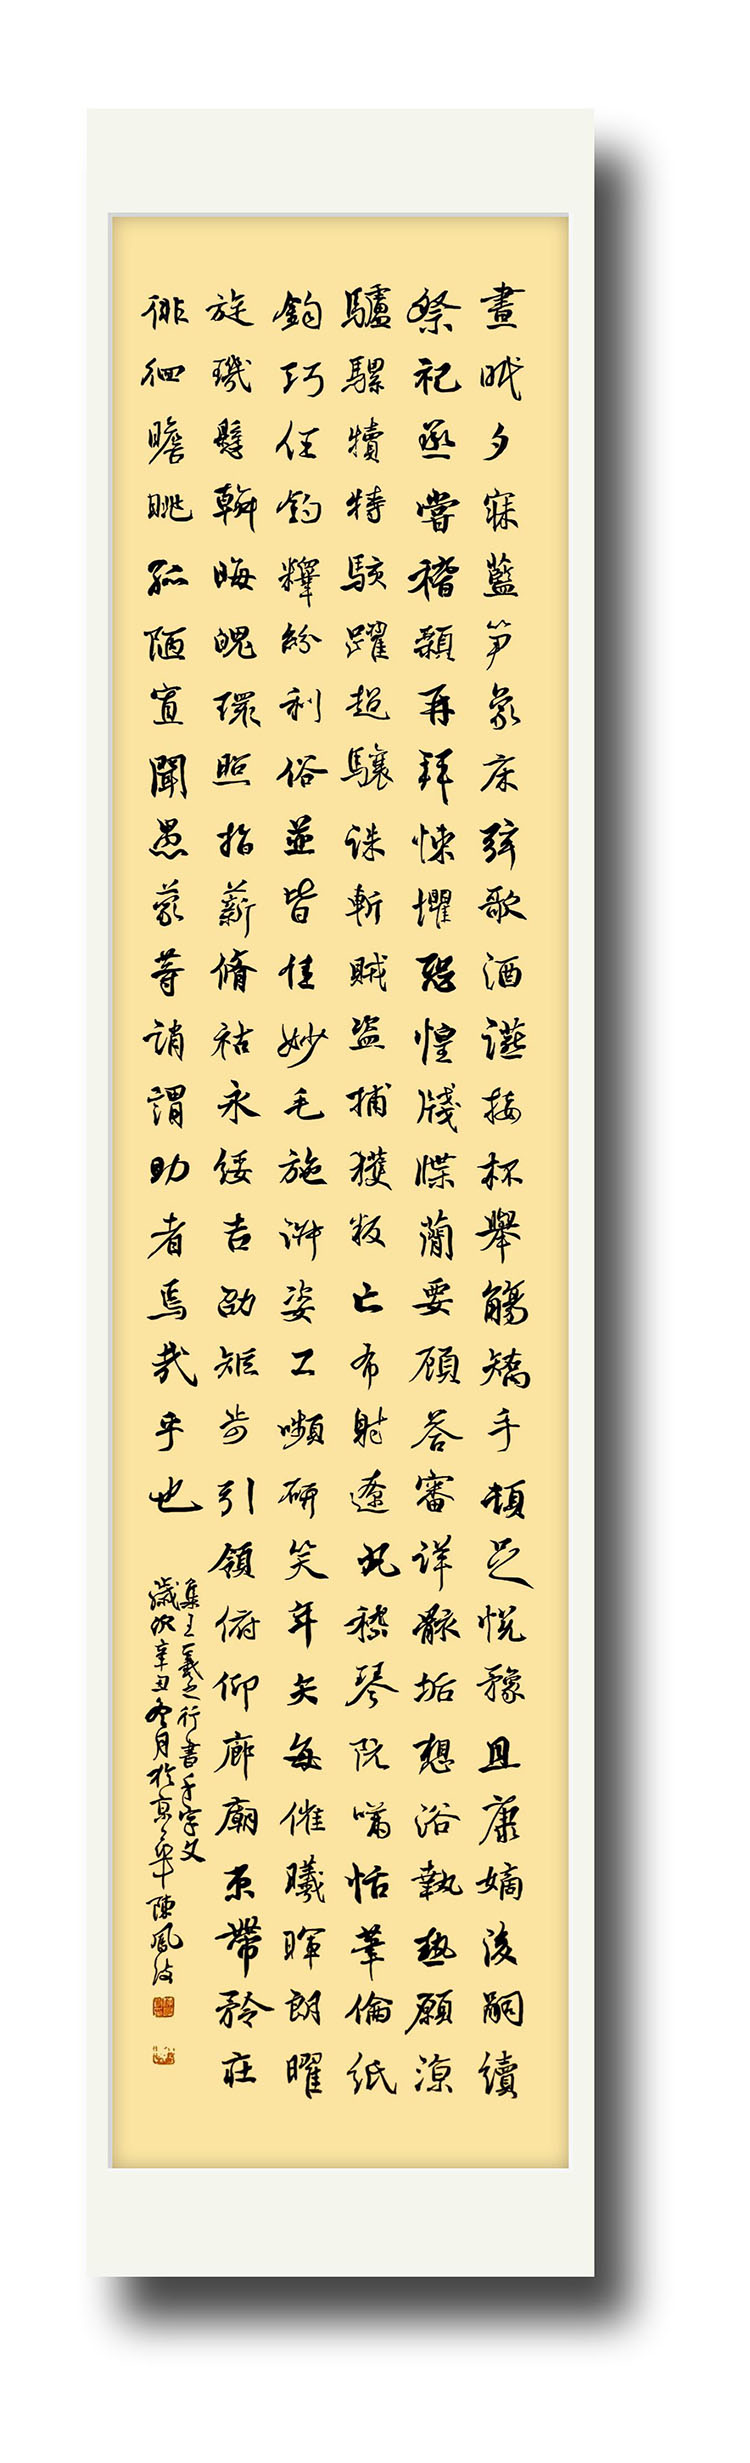 晝眠夕寐藍笋象床弦歌酒讌接杯舉觴矯手頓足悅豫且康嫡後嗣續
祭祀烝嘗稽顙再拜悚懼恐惶牋牒簡要顧答審詳骸垢想浴執熱願涼
驢騾犢特駭躍超驤誅斬賊盗捕獲叛亡布射遼丸嵇琴阮嘯恬筆倫紙
鈞巧任釣釋紛利俗並皆佳妙毛施淑姿工嚬研笑年矢每催曦暉朗曜
旋璣懸斡晦魄環照指薪脩祜永綏吉劭矩步引領俯仰廊廟束帶矜莊
徘徊瞻眺孤陋寡聞愚蒙等誚謂助者焉哉乎也
集王羲之行書千字文
歲次辛丑冬月於京華陳鳳波